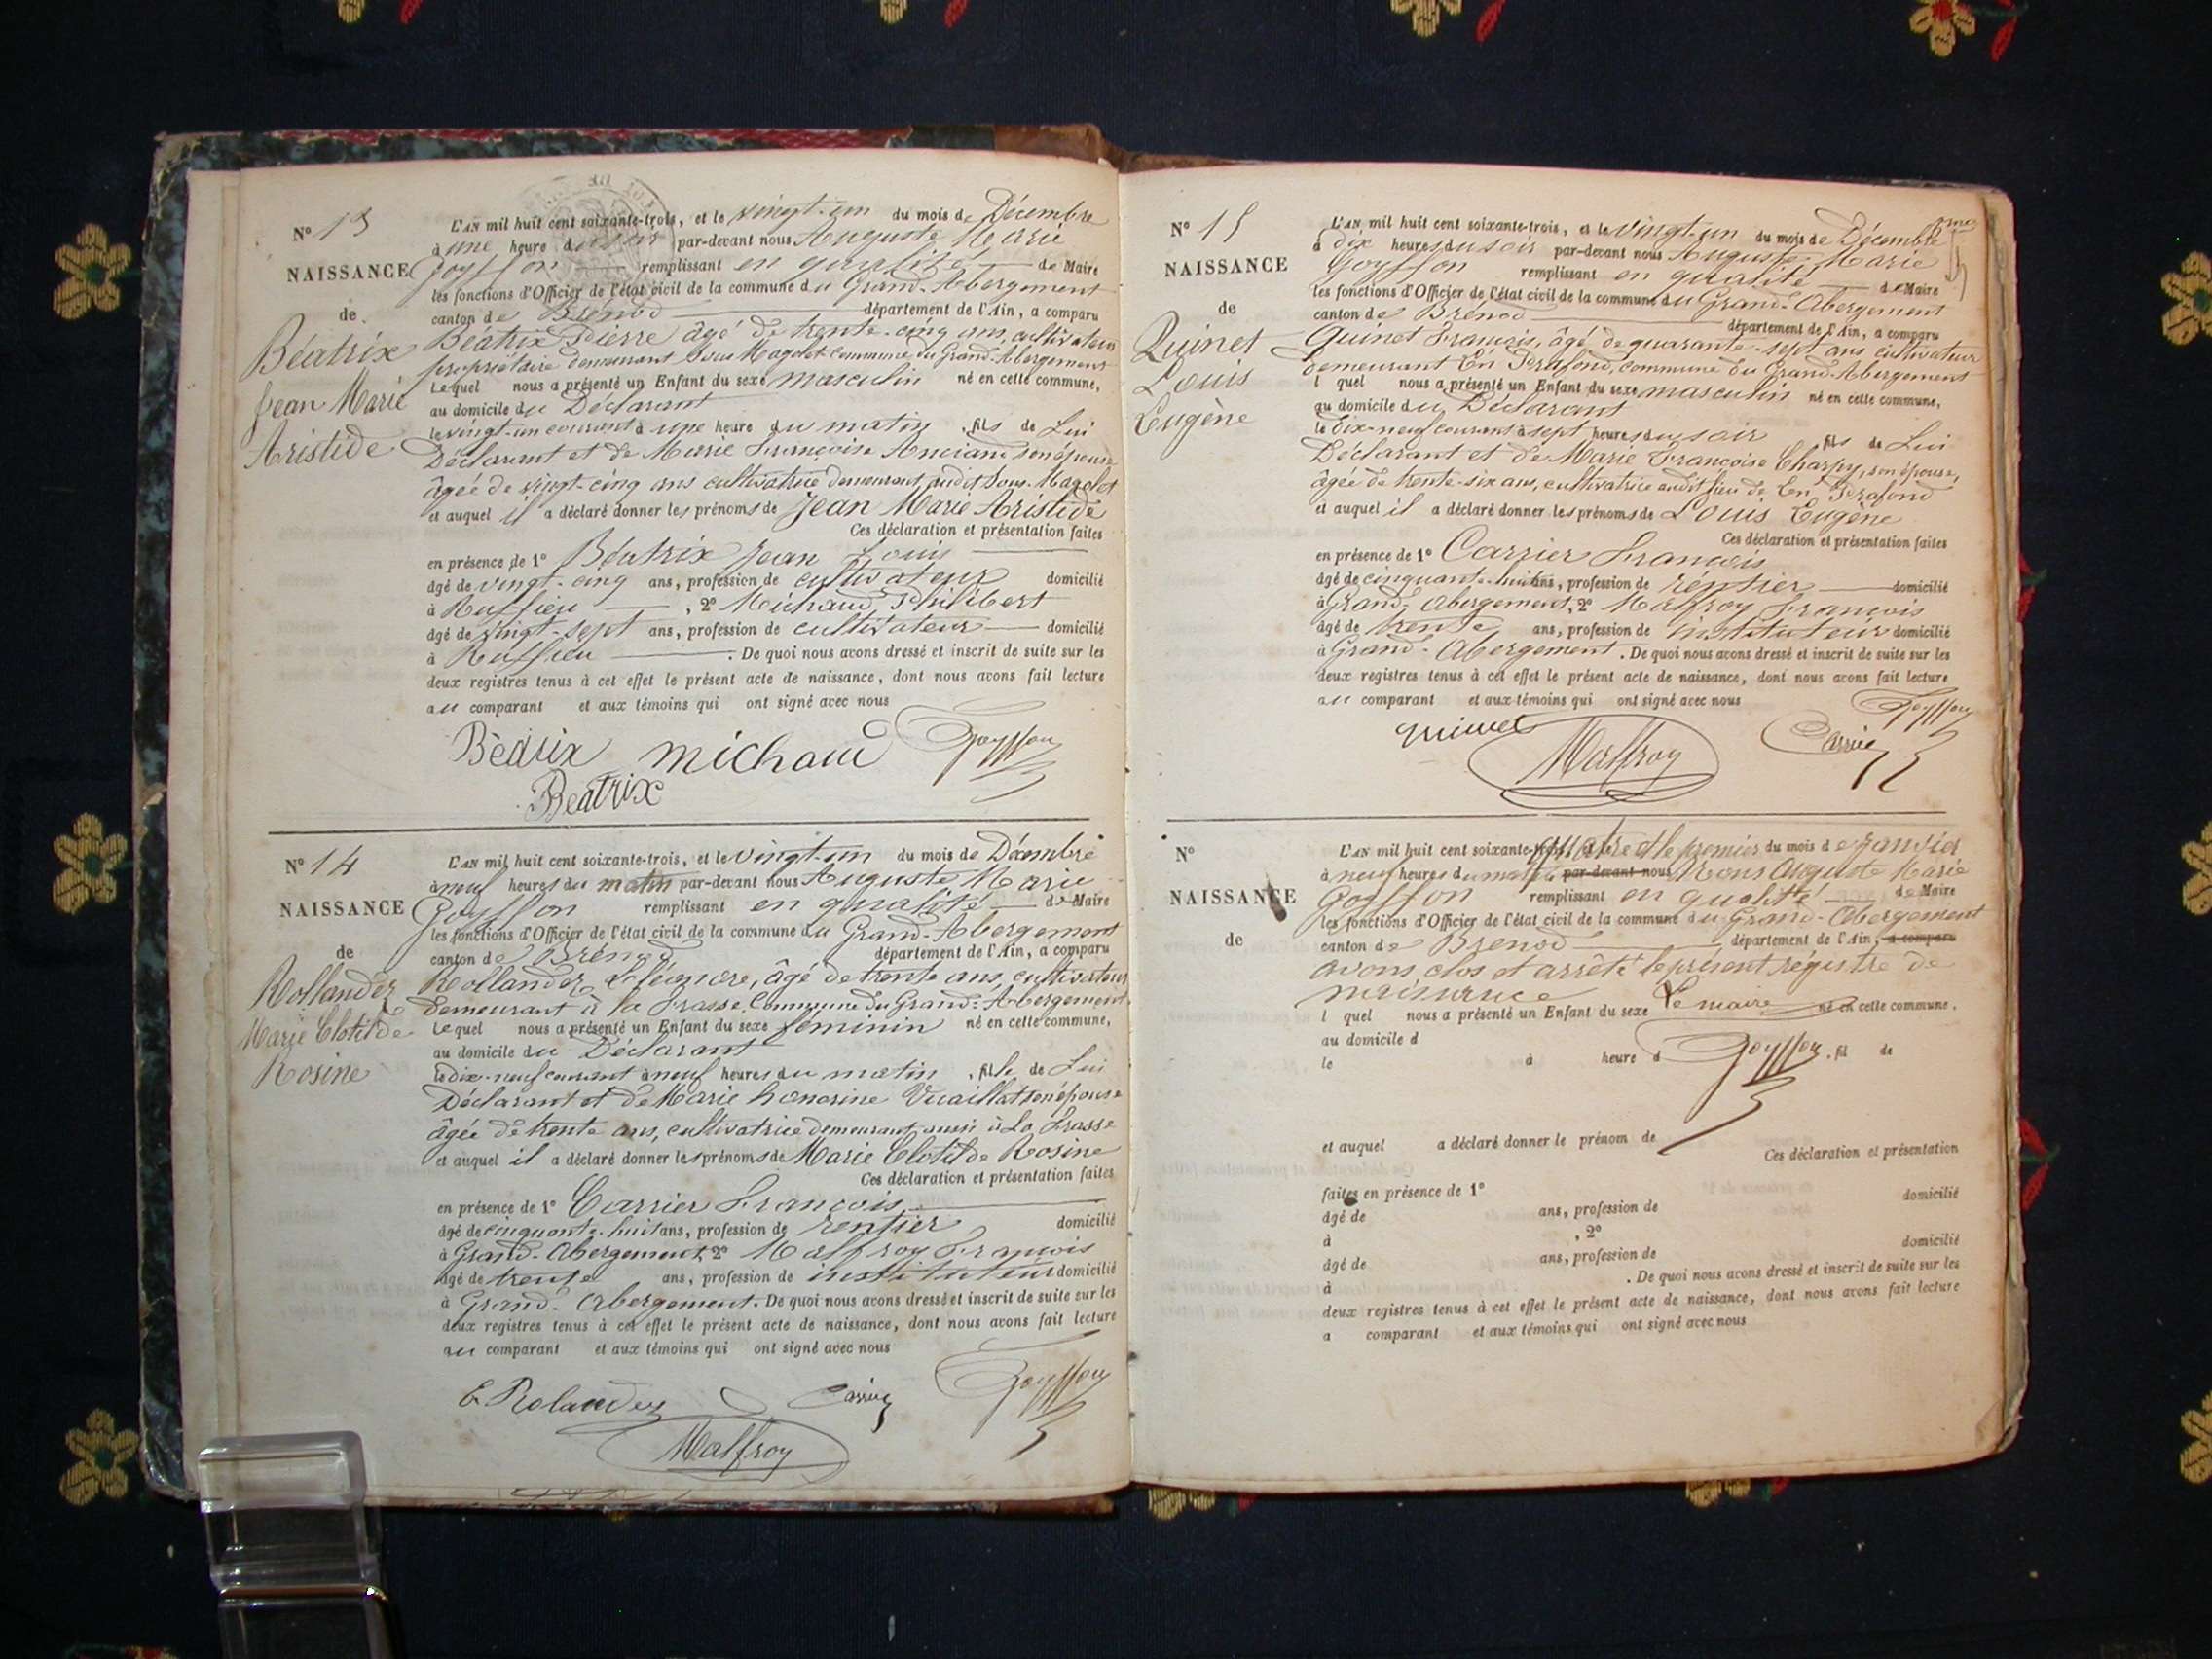 N° 13
NAISSANCE
de
Béatrix
Jean Marie
Aristide
L'AN mil huit cent soixante-trois, et le vingt-un du mois de Décembre
à une heure du soir par-devant nous Auguste Marie
Goyffon remplissant en qualité de Maire
les fonctions d'Officier de l'état civil de la commune du Grand-Abergement
canton de Brénod département de l'Ain, a comparu
Béatrix Pierre âgé de trente-cinq ans, cultivateur
propriétaire demeurant Sous Magolet commune du Grand-Abergement
Lequel nous a présenté un Enfant du sexe masculin né en cette commune,
au domicile du Déclarant
le vingt-un courant à une heure du matin, fils de Lui
Déclarant et de Marie Françoise Anciand son épouse
âgée de vingt-cinq ans cultivatrice demeurant audit Sous-Magolet
et auquel il a déclaré donner les prénoms de Jean Marie Aristide
Ces déclaration et présentation faites
en présence de 1° Béatrix Jean Louis
âgé de vingt-cinq ans, profession de cultivateur domicilié
à Ruffieu, 2° Michaud Philibert
âgé de vingt-sept ans, profession de cultivateur domicilié
à Ruffieu. De quoi nous avons dressé et inscrit de suite sur les
deux registres tenus à cet effet le présent acte de naissance, dont nous avons fait lecture
au comparant et aux témoins qui ont signé avec nous
Béatrix michaud Goyffon
Béatrix
N° 14
NAISSANCE
de
Rollandez
Marie Clotilde
Rosine
L'AN mil huit cent soixante-trois, et le vingt-un du mois de Décembre
à neuf heures du matin par-devant nous Auguste Marie
Goyffon remplissant en qualité de Maire
les fonctions d'Officier de l'état civil de la commune du Grand-Abergement
canton de Brénod département de l'Ain, a comparu
Rollandez Eléonore, âgé de trente ans, cultivateur
demeurant à la Frasse Commune du Grand-Abergement
Lequel nous a présenté un Enfant du sexe féminin né en cette commune,
au domicile du Déclarant
le dix-neuf courant à neuf heures du matin, fille de Lui
Déclarant et de Marie honorine Vuaillat son épouse
âgée de trente ans, cultivatrice demeurant aussi à La Frasse
et auquel il a déclaré donner les prénoms de Marie Clotilde Rosine
Ces déclaration et présentation faites
en présence de 1° Carrier François
âgé de cinquante-huit ans, profession de rentier domicilié
à Grand-Abergement 2° Malfroy François
âgé de trente ans, profession de instituteur domicilié
à Grand-Abergement. De quoi nous avons dressé et inscrit de suite sur les
deux registres tenus à cet effet le présent acte de naissance, dont nous avons fait lecture
au comparant et aux témoins qui ont signé avec nous
E Rolandez Carrier Goyffon
Malfroy
N° 15
NAISSANCE
de
Quinet
Louis
Eugène
L'AN mil huit cent soixante-trois, et le vingt-un du mois de Décembre
à dix heures du soir par-devant nous Auguste Marie
Goyffon remplissant en qualité de Maire
les fonctions d'Officier de l'état civil de la commune du Grand-Abergement
canton de Brénod département de l'Ain, a comparu
Quinet François, âgé de quarante-sept ans cultivateur
demeurant En Prafond, commune du Grand-Abergement
l quel nous a présenté un Enfant du sexe masculin né en cette commune,
au domicile du Déclarant
le dix-neuf courant à sept heures du soir fils de Lui
Déclarant et de Marie Françoise Charpy, son épouse,
âgée de trente-six ans, cultivatrice audit lieu de En Prafond
et auquel il a déclaré donner les prénoms de Louis Eugène
Ces déclaration et présentation faites
en présence de 1° Carrier François
âgé de cinquante-huit ans, profession de rentier domicilié
à Grand-Abergement, 2° Malfroy François
âgé de trente ans, profession de instituteur domicilié
à Grand-Abergement. De quoi nous avons dressé et inscrit de suite sur les
deux registres tenus à cet effet le présent acte de naissance, dont nous avons fait lecture
au comparant et aux témoins qui ont signé avec nous
Goyffon
quinet Malfroy Carrier
N°
NAISSANCE
de
L'AN mil huit cent soixante-quatre et le premier du mois de Janvier
à neuf heures du matin par-devant nous Nous Auguste Marie
Goyffon remplissant en qualité de Maire
les fonctions d'Officier de l'état civil de la commune du Grand-Abergement
canton de Brenod département de l'Ain, a comparu
avons clos et arrêté le présent régistre de
naissance
l quel nous a présenté un Enfant du sexe Le maire né en cette commune,
au domicile d
le à heure d Goyffon, fil de
et auquel a déclaré donner le prénom de
Ces déclaration et présentation
faites en présence de 1°
âgé de ans, profession de domicilié
à , 2°
âgé de ans, profession de domicilié
à . De quoi nous avons dressé et inscrit de suite sur les
deux registres tenus à cet effet le présent acte de naissance, dont nous avons fait lecture
a comparant et aux témoins qui ont signé avec nous